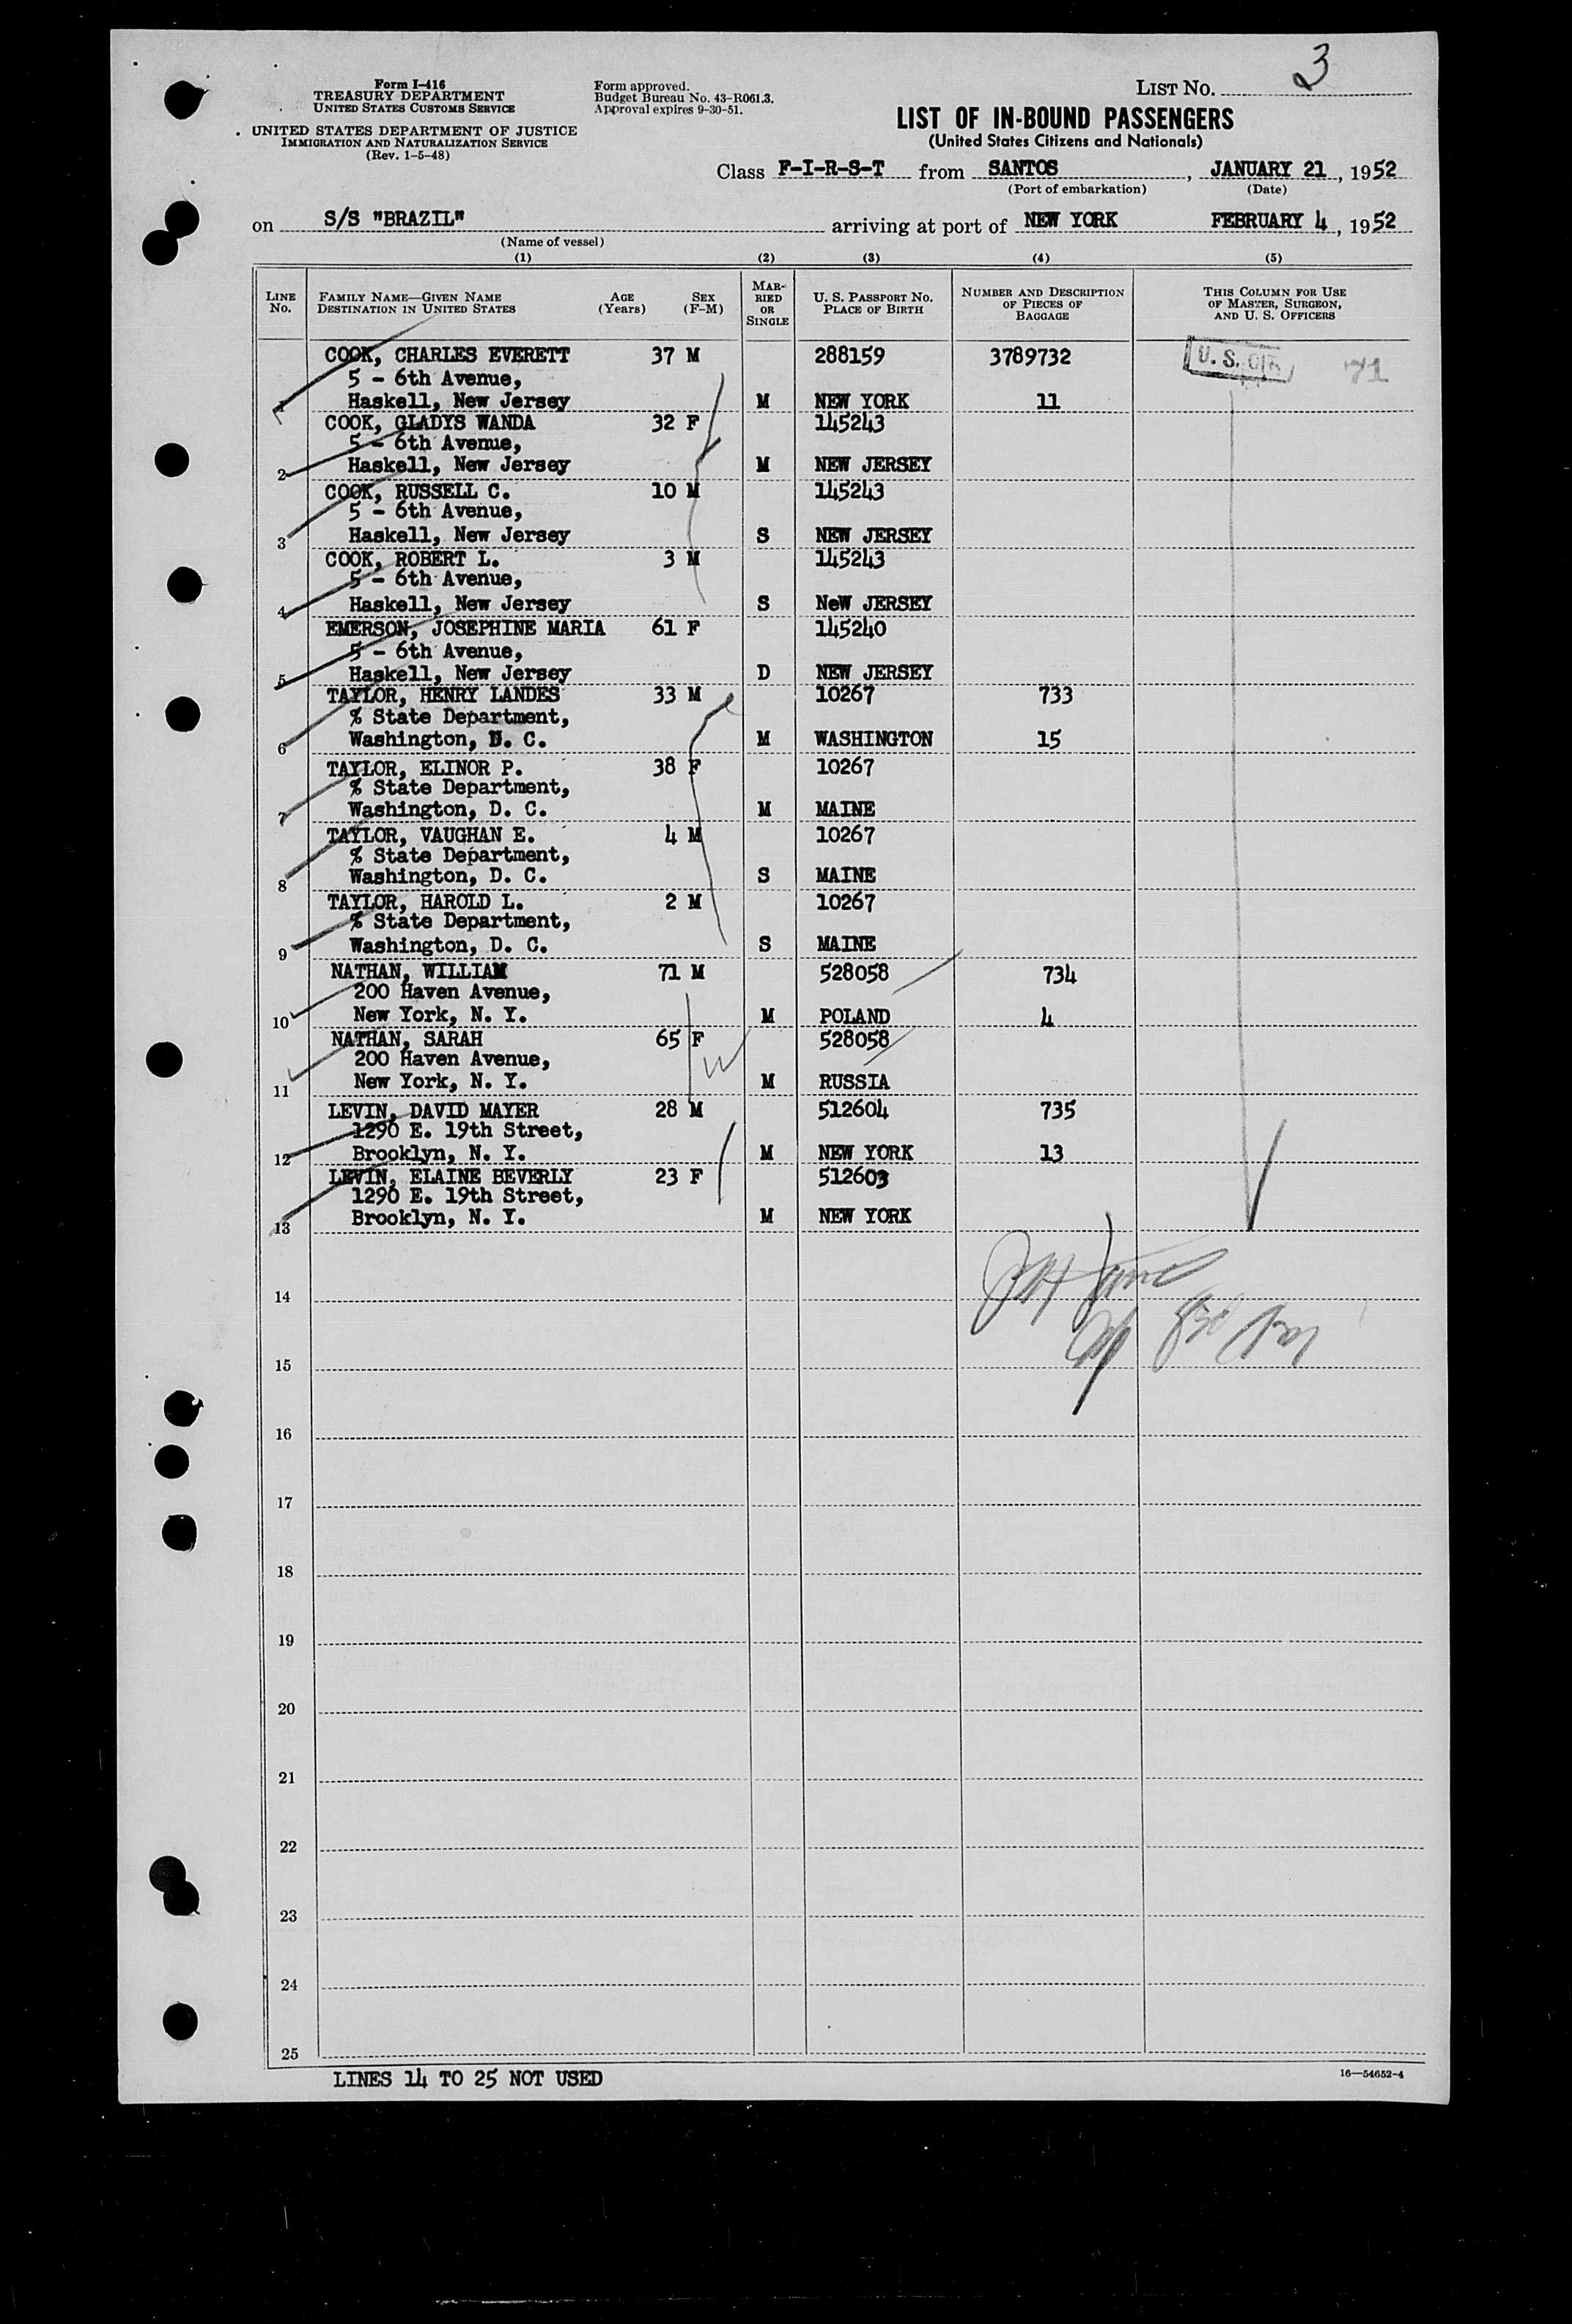 Form I-416
TREASURY DEPARTMENT
UNITED STATES CUSTOMS SERVICE
UNITED STATES DEPARTMENT OF JUSTICE
IMMIGRATION AND NATURALIZATION SERVICE
(Rev. 1-5-48)
Form approved.
Budget Bureau No. 43-R061.3.
Approval expires 9-30-51.
LIST NO. 3
LIST OF IN-BOUND PASSENGERS
(United States Citizens and Nationals)
Class F-I-R-S-T from SANTOS, JANUARY 21, 1952
(Port of embarkation) (Date)
on S/S "BRAZIL" arriving at port of NEW YORK FEBRUARY 4, 1952
(Name of vessel)
(1) (2) (3) (4) (5)
LINE NO. FAMILY NAME—GIVEN NAME DESTINATION IN UNITED STATES AGE (Years) SEX (F-M) MARRIED OR SINGLE U. S. PASSPORT NO. PLACE OF BIRTH NUMBER AND DESCRIPTION OF PIECES OF BAGGAGE THIS COLUMN FOR USE OF MASTER, SURGEON, AND U. S. OFFICERS
COOK, CHARLES EVERETT 37 M 288159 3789732 U. S. 71
5 - 6th Avenue,
1 Haskell, New Jersey M NEW YORK 11
COOK, GLADYS WANDA 32 F 145243
5 - 6th Avenue,
2 Haskell, New Jersey M NEW JERSEY
COOK, RUSSELL C. 10 M 145243
5 - 6th Avenue,
3 Haskell, New Jersey S NEW JERSEY
COOK, ROBERT L. 3 M 145243
5 - 6th Avenue,
4 Haskell, New Jersey S NeW JERSEY
EMERSON, JOSEPHINE MARIA 61 F 145240
5 - 6th Avenue,
5 Haskell, New Jersey D NEW JERSEY
TAYLOR, HENRY LANDES 33 M 10267 733
% State Department,
6 Washington, D. C. M WASHINGTON 15
TAYLOR, ELINOR P. 38 F 10267
% State Department,
7 Washington, D. C. M MAINE
TAYLOR, VAUGHAN E. 4 M 10267
% State Department,
8 Washington, D. C. S MAINE
TAYLOR, HAROLD L. 2 M 10267
% State Department,
9 Washington, D. C. S MAINE
NATHAN, WILLIAM 71 M 528058 734
200 Haven Avenue,
10 New York, N. Y. M POLAND 4
NATHAN, SARAH 65 F 528058
200 Haven Avenue,
11 New York, N. Y. M RUSSIA
LEVIN, DAVID MAYER 28 M 512604 735
1290 E. 19th Street,
12 Brooklyn, N. Y. M NEW YORK 13
LEVIN, ELAINE BEVERLY 23 F 512603
1290 E. 19th Street,
13 Brooklyn, N. Y. M NEW YORK
14
15
16
17
18
19
20
21
22
23
24
25
LINES 14 TO 25 NOT USED
16—54652-4